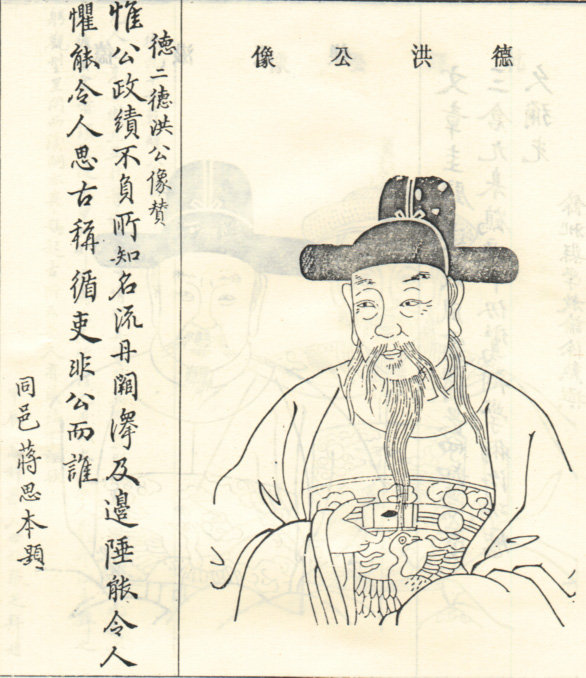 德洪公像
德二德洪公像贊
惟公政績不負所知名流丹闕澤及邊陲能令人
懼能令人思古稱循吏非公而誰
同邑蔣思本題